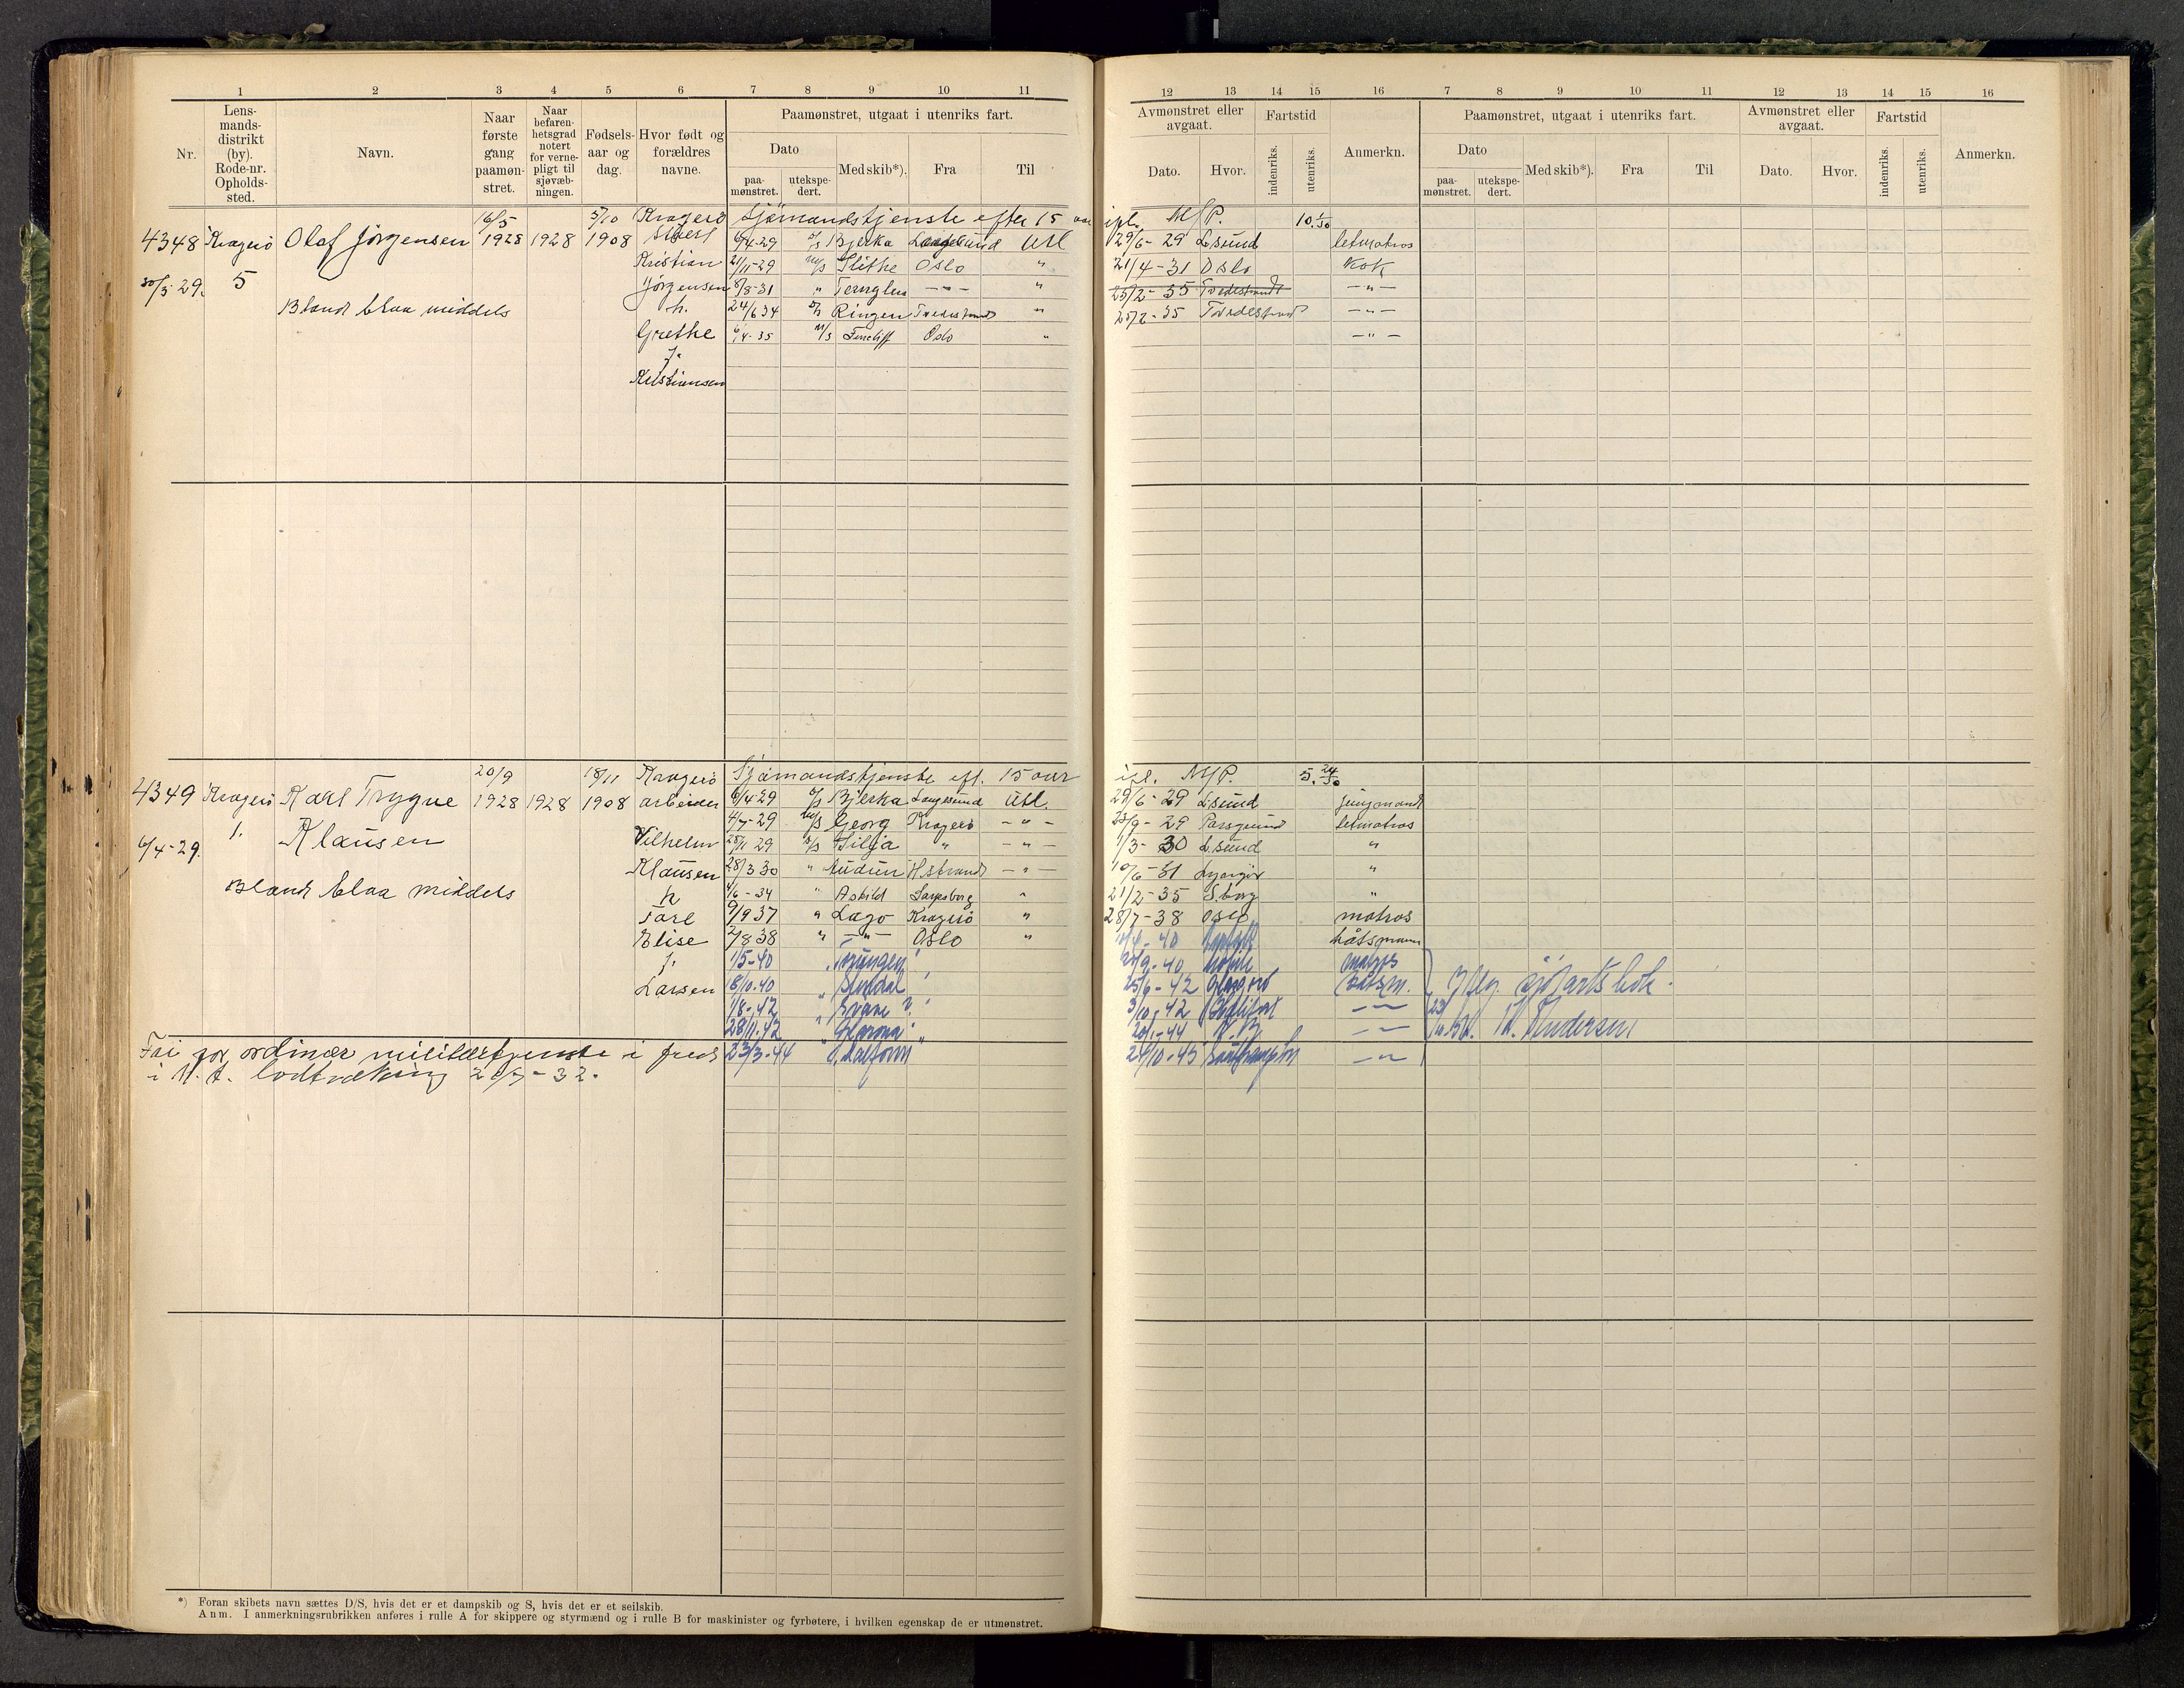 1 2 3 4 5 6 7 8 9 10 11
Nr.
Lens-
mands-
distrikt
(by).
Rode-nr.
Opholds-
sted.
Navn.
Naar
første
gang
paamøn-
stret.
Naar
befaren-
hetsgrad
notert
for verne-
pligt til
sjøvæb-
ningen.
Fødsels-
aar og
dag.
Hvor født og
forældres
navne.
Paamønstret, utgaat i utenriks fart.
Dato
paa-
mønstret.
utekspe-
dert.
Med skib*).
Fra
Til
16/5 5/10 Kragerø Sjømandstjenste efter 15 aar
4348 Kragerø Olaf Jørgensen 1928 1928 1908 6/4-29 D/S Bjerka Langesund Utl
Kristian 21/11-29 M/S Oslo "
30/5-29. 5 Jørgensen 8/8-31 " Ternglen -"- "
Blond blaa middels h. 24/6 34 Ringen Tvedestrand "
Grethe 6/4-35 M/S Ferncliff Oslo "
f.
Kristiansen
20/9 18/11 Kragerø Sjømandstjenste eft. 15 aar
4349 Kragerø Karl Trygve 1928 1928 1908 arbeider 6/4-29 D/S Bjerka Langesund Utl.
1. 4/7-29 Georg Kragerø -"-
6/4-29. Klausen Vilhelm 25/11 29 Silja " -"-
Klausen 28/3 30 " Audun H.strand -"-
Blond blaa middels h 4/6-34 " Askild Sarpsborg "
Tore 9/9 37 " Lago Kragerø "
Elise 2/8 38 " -"- Oslo "
f. 1/5-40
Larsen 18/10-40 "
1/8-42 " Svane ?
28/11-42 "
Fri for ordinær militærtjenste i fred 23/3-44
i h. t. lodtrekning 20/5-32.
*) Foran skibets navn sættes D/S, hvis det er et dampskib og S, hvis det er et seilskib.
Anm. I anmerkningsrubrikken anføres i rulle A for skippere og styrmænd og i rulle B for maskinister og fyrbøtere, i hvilken egenskap de er utmønstret.
12 13 14 15 16 7 8 9 10 11 12 13 14 15 16
Avmønstret eller
avgaat.
Dato.
Hvor.
Fartstid
indenriks.
utenriks.
Anmerkn.
Paamønstret, utgaat i utenriks fart.
Dato
paa-
mønstret.
utekspe-
dert.
Med skib*).
Fra
Til
Avmønstret eller
avgaat.
Dato.
Hvor.
Fartstid
indenriks.
utenriks.
Anmerkn.
ipl. M/P. 10. 1/30
29/6-29 L.sund letmatros
21/4-31 Oslo kok
25/2-35 Tvedestrand -"-
25/2-35 Tvedestrand -"-
-"-
ipl. M/P. 5. 24/30
29/6-29 L.sund jungmand
23/9-29 Porsgrund letmatros
1/3-30 L.sund "
10/6-31 Lyngør "
21/2-35 S.borg "
28/7-38 Oslo matros
båtsmann
9-40 matros
25/6-42 Glasgow båtsm. Iflg. sjøfartsbok.
3/10-42 -"-
20/1-44 N.Y. -"- Andersen
24/10-45 Southampton -"-